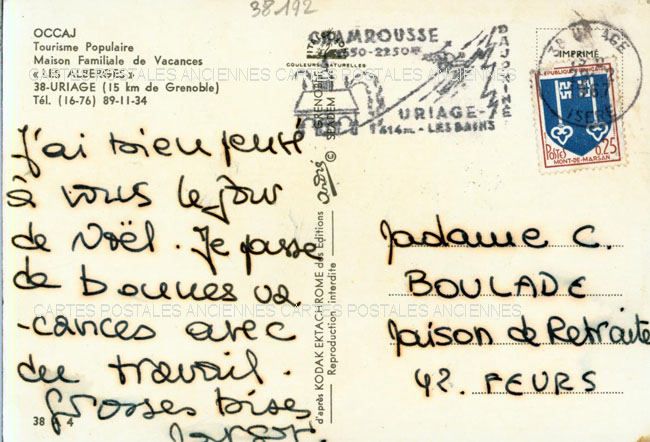 38.192
OCCAJ
Tourisme Populaire
Maison Familiale de Vacances
« LES ALBERGES »
38-URIAGE (15 km de Grenoble)
Tél. (16-76) 89-11-34
CHAMROUSSE
1650-2250m
DAUPHINÉ
URIAGE-
414m - LES BAINS
COULEURS NATURELLES
URIAGE
ISERE
IMPRIMÉ
REPUBLIQUE FRANÇAISE
POSTES 0,25
MONT-DE-MARSAN
J'ai bien pensé
à vous le jour
de Noël. Je passe
de bonnes va
-cances avec
du travail.
Grosses bises
38 4
GRENOBLE
© SPADEM
d'après KODAK EKTACHROME des Editions
Reproduction interdite
Madame C.
BOULADE
Maison de Retraite
42. FEURS
CARTES POSTALES ANCIENNES CARTES POSTALES ANCIENNES
CARTES POSTALES ANCIENNES CARTES POSTALES ANCIENNES